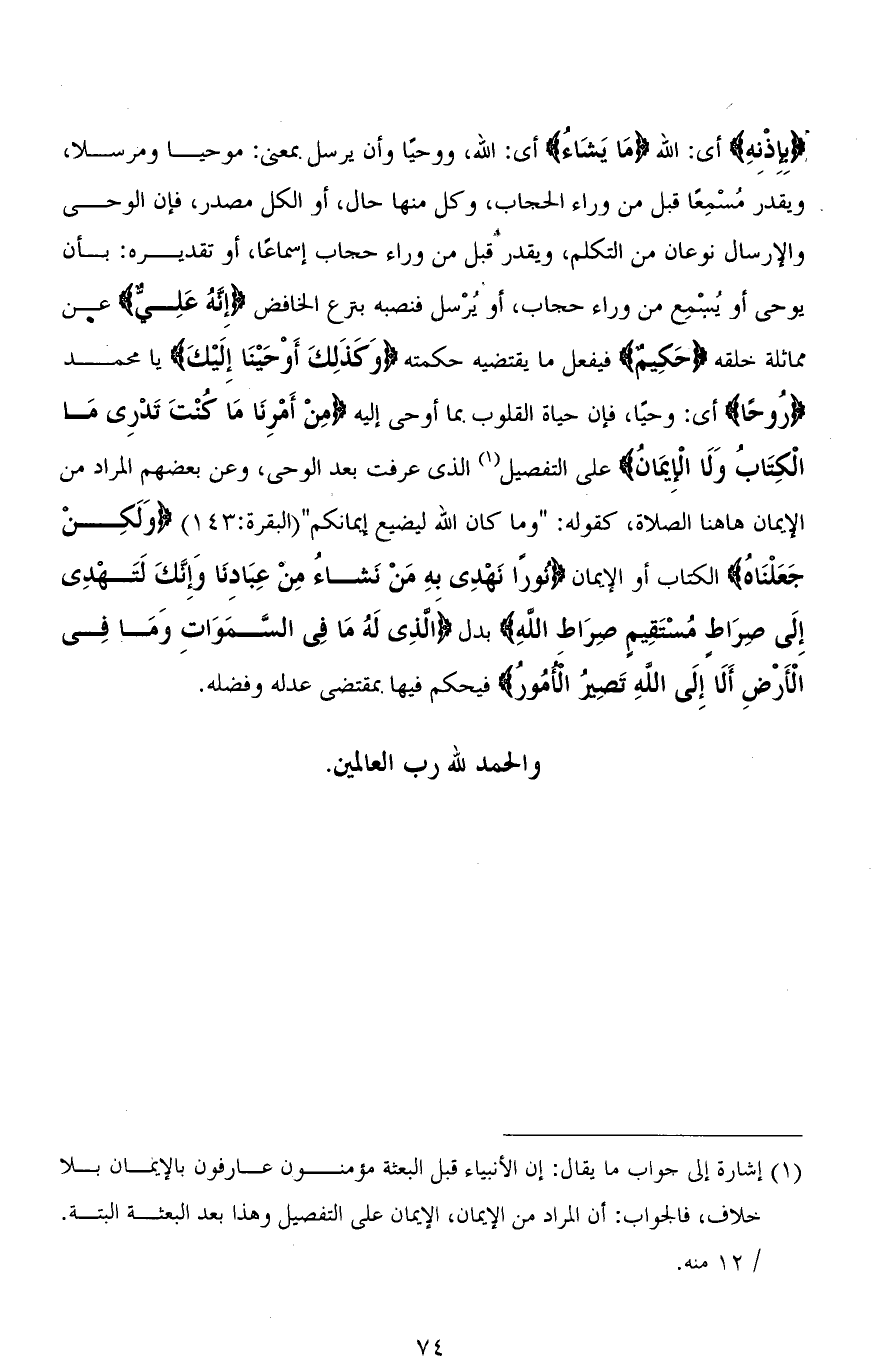 ﴿بِإِذْنِهِ﴾ أى: الله ﴿مَا يَشَاءُ﴾ أى: الله، ووحيًا وأن يرسل بمعنى: موحيا ومرسلا،
ويقدر مُسْمِعًا قبل من وراء الحجاب، وكل منها حال، أو الكل مصدر، فإن الوحى
والإرسال نوعان من التكلم، ويقدر قبل من وراء حجاب إسماعًا، أو تقديره: بأن
يوحى أو يُسْمِع من وراء حجاب، أو يُرْسل فنصبه بترع الخافض ﴿إِنَّهُ عَلِيٌّ﴾ عن
مماثلة خلقه ﴿حَكِيمٌ﴾ فيفعل ما يقتضيه حكمته ﴿وَكَذَلِكَ أَوْحَيْنَا إِلَيْكَ﴾ يا محمد
﴿رُوحًا﴾ أى: وحيًا، فإن حياة القلوب بما أوحى إليه ﴿مِنْ أَمْرِنَا مَا كُنْتَ تَدْرِى مَا
الْكِتَابُ وَلَا الْإِيمَانُ﴾ على التفصيل(١) الذى عرفت بعد الوحى، وعن بعضهم المراد من
الإيمان هاهنا الصلاة، كقوله: "وما كان الله ليضيع إيمانكم"(البقرة:١٤٣) ﴿وَلَكِنْ
جَعَلْنَاهُ﴾ الكتاب أو الإيمان ﴿نُورًا نَهْدِى بِهِ مَنْ نَشَاءُ مِنْ عِبَادِنَا وَإِنَّكَ لَتَهْدِى
إِلَى صِرَاطٍ مُسْتَقِيمٍ صِرَاطِ اللَّهِ﴾ بدل ﴿الَّذِى لَهُ مَا فِى السَّمَوَاتِ وَمَا فِى
الْأَرْضِ أَلَا إِلَى اللَّهِ تَصِيرُ الْأُمُورُ﴾ فيحكم فيها بمقتضى عدله وفضله.
والحمد لله رب العالمين.
(١) إشارة إلى جواب ما يقال: إن الأنبياء قبل البعثة مؤمنون عارفون بالإيمان بلا
خلاف، فالجواب: أن المراد من الإيمان، الإيمان على التفصيل وهذا بعد البعثة البتة.
/ ١٢ منه.
٧٤